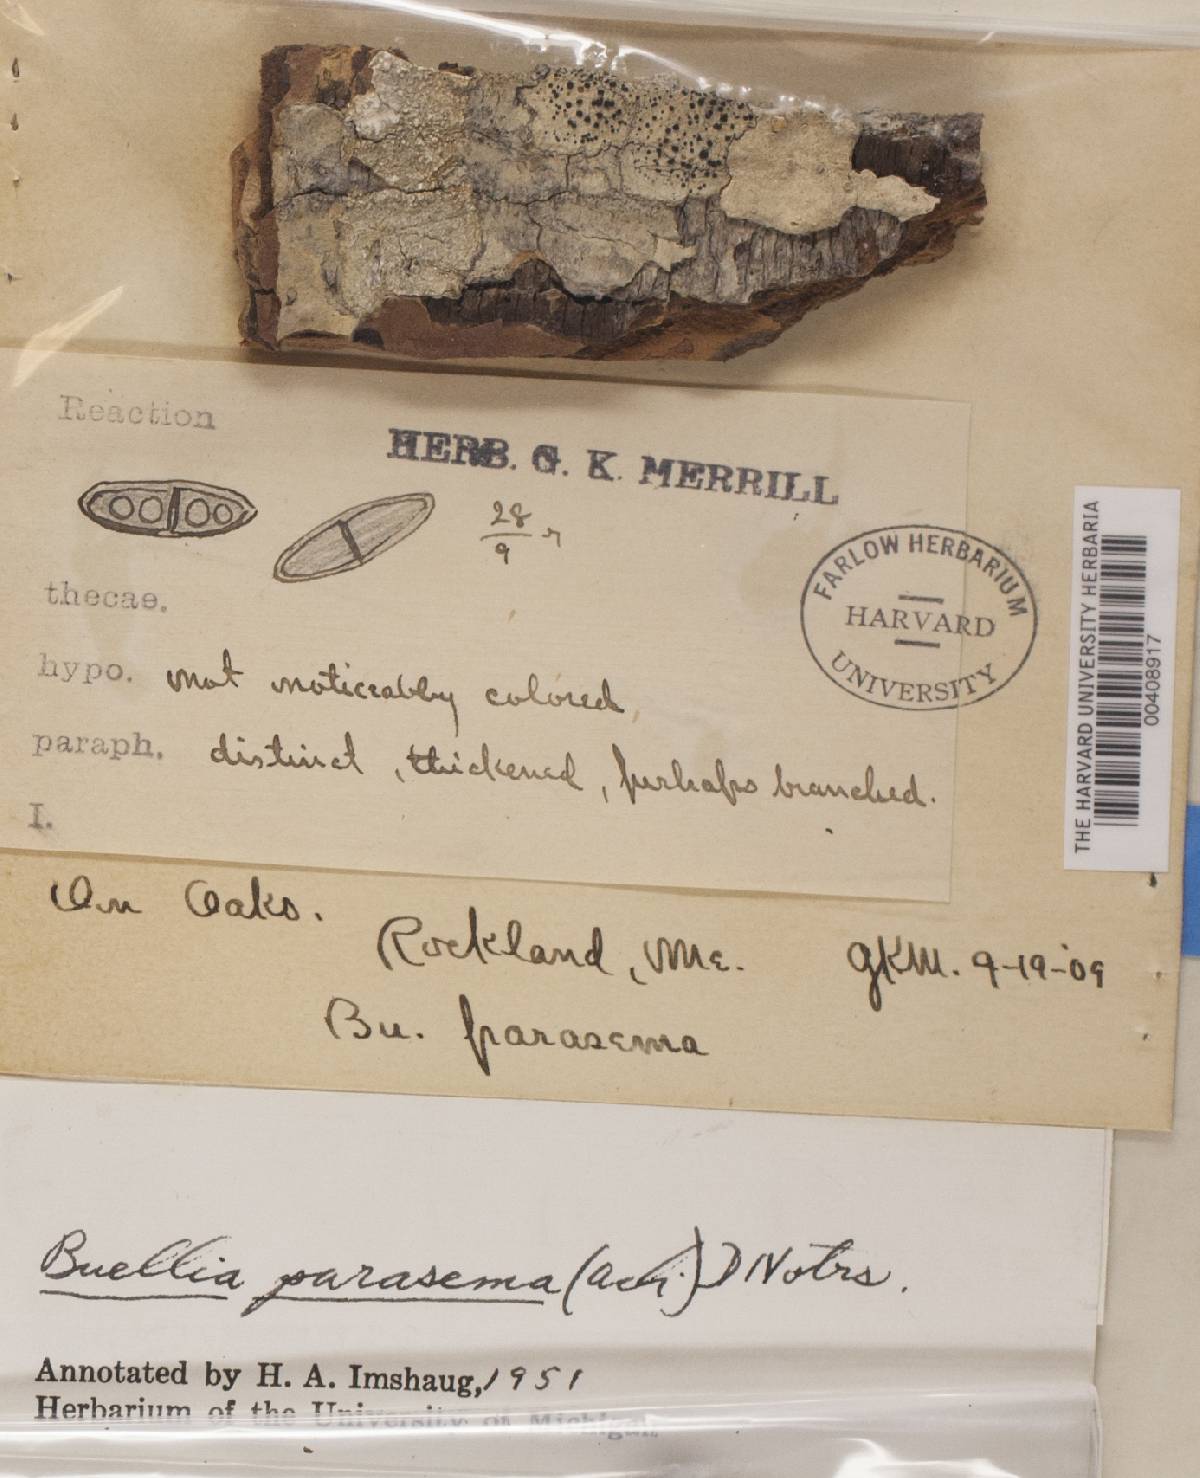 Reaction
HERB. G. K. MERRILL
28
9
thecae.
hypo. not noticeably colored
paraph. distinct, thickened, perhaps branched.
I.
FARLOW HERBARIUM
HARVARD
UNIVERSITY
THE HARVARD UNIVERSITY HERBARIA
00408917
On Oaks.
Rockland, Me. GKM. 9-19-'09
Bu. parasema
Buellia parasema (Ach.) D Notrs.
Annotated by H. A. Imshaug, 1951
Herbarium of the University of Michigan